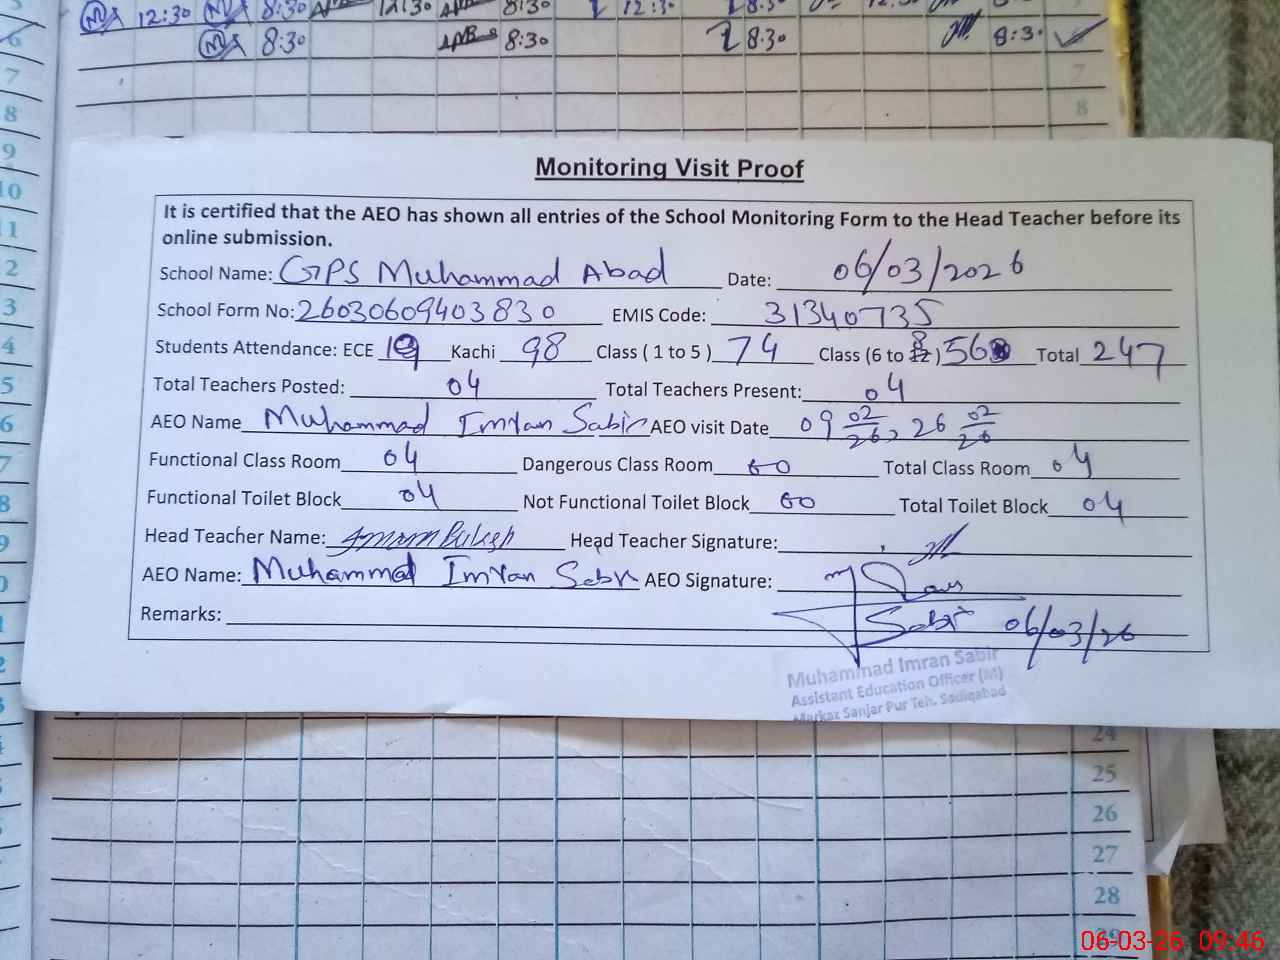 12:30 8:30 12:30 8:30 12:30 8:30
8:30 8:30 8:30 8:30
7
8
Monitoring Visit Proof
It is certified that the AEO has shown all entries of the School Monitoring Form to the Head Teacher before its
online submission.
School Name: GPS Muhammad Abad Date: 06/03/2026
School Form No: 26030609403830 EMIS Code: 31340735
Students Attendance: ECE 19 Kachi 98 Class ( 1 to 5 ) 74 Class (6 to 8) 56 Total 247
Total Teachers Posted: 04 Total Teachers Present: 04
AEO Name Muhammad Imran Sabir AEO visit Date 09 02/26, 26 02/26
Functional Class Room 04 Dangerous Class Room 00 Total Class Room 04
Functional Toilet Block 04 Not Functional Toilet Block 00 Total Toilet Block 04
Head Teacher Name: Head Teacher Signature:
AEO Name: Muhammad Imran Sabir AEO Signature:
Remarks: Sabir 06/03/26
Muhammad Imran Sabir
Assistant Education Officer (M)
Markaz Sanjar Pur Teh. Sadiqabad
24
25
26
27
28
29
06-03-26 09:46